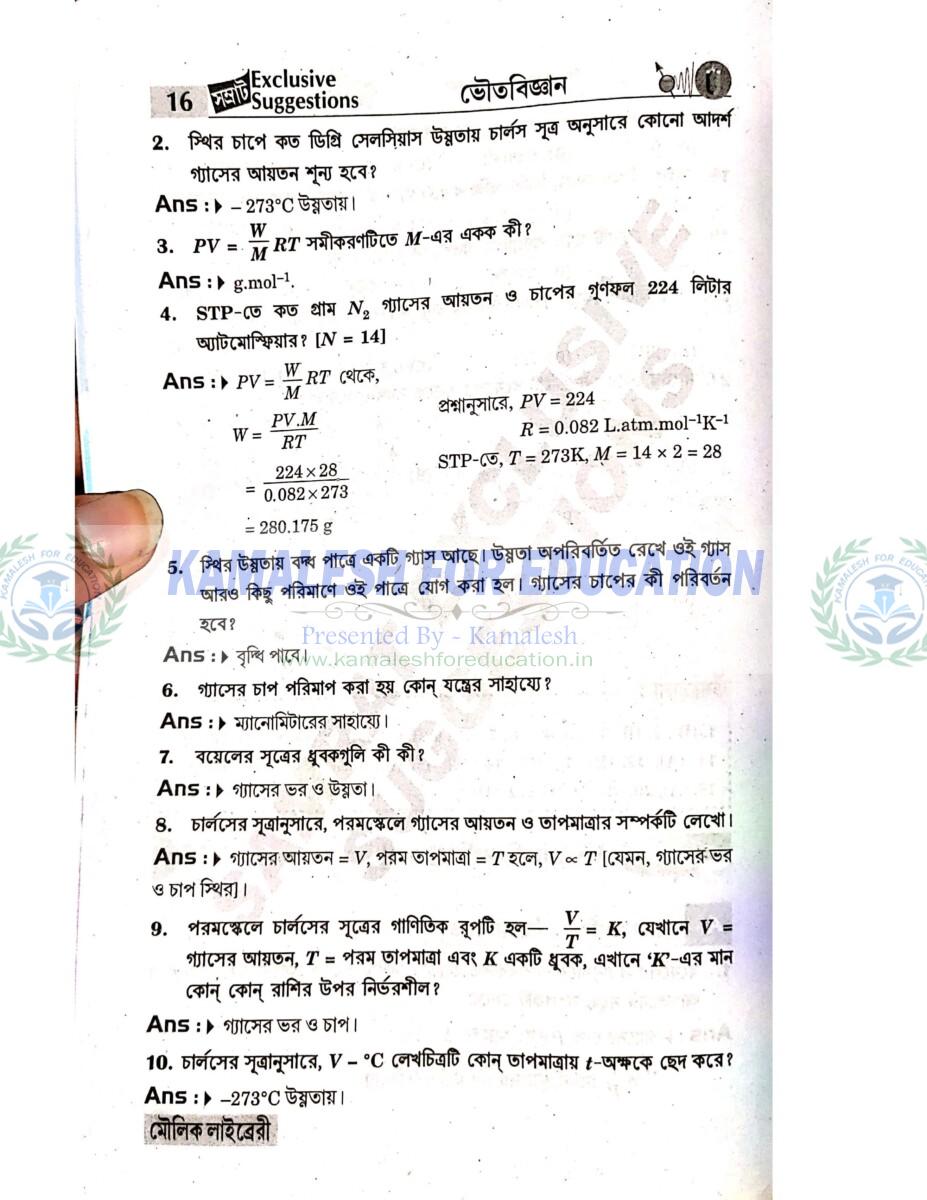 16 সম্রাট Exclusive Suggestions ভৌতবিজ্ঞান
2. স্থির চাপে কত ডিগ্রি সেলসিয়াস উষ্ণতায় চার্লস সূত্র অনুসারে কোনো আদর্শ
গ্যাসের আয়তন শূন্য হবে?
Ans : – 273°C উষ্ণতায়।
3. PV = W/M RT সমীকরণটিতে M-এর একক কী?
Ans : g.mol⁻¹.
4. STP-তে কত গ্রাম N₂ গ্যাসের আয়তন ও চাপের গুণফল 224 লিটার
অ্যাটমোস্ফিয়ার? [N = 14]
Ans : PV = W/M RT থেকে,
W = PV.M/RT
= 224 × 28/0.082 × 273
= 280.175 g
প্রশ্নানুসারে, PV = 224
R = 0.082 L.atm.mol⁻¹K⁻¹
STP-তে, T = 273K, M = 14 × 2 = 28
5. স্থির উষ্ণতায় বদ্ধ পাত্রে একটি গ্যাস আছে। উষ্ণতা অপরিবর্তিত রেখে ওই গ্যাস
আরও কিছু পরিমাণে ওই পাত্রে যোগ করা হল। গ্যাসের চাপের কী পরিবর্তন
হবে?
Ans : বৃদ্ধি পাবে।
6. গ্যাসের চাপ পরিমাপ করা হয় কোন্ যন্ত্রের সাহায্যে?
Ans : ম্যানোমিটারের সাহায্যে।
7. বয়েলের সূত্রের ধ্রুবকগুলি কী কী?
Ans : গ্যাসের ভর ও উষ্ণতা।
8. চার্লসের সূত্রানুসারে, পরমস্কেলে গ্যাসের আয়তন ও তাপমাত্রার সম্পর্কটি লেখো।
Ans : গ্যাসের আয়তন = V, পরম তাপমাত্রা = T হলে, V ∝ T [যেমন, গ্যাসের ভর
ও চাপ স্থির]।
9. পরমস্কেলে চার্লসের সূত্রের গাণিতিক রূপটি হল— V/T = K, যেখানে V =
গ্যাসের আয়তন, T = পরম তাপমাত্রা এবং K একটি ধ্রুবক, এখানে ‘K’-এর মান
কোন্ কোন্ রাশির উপর নির্ভরশীল?
Ans : গ্যাসের ভর ও চাপ।
10. চার্লসের সূত্রানুসারে, V – °C লেখচিত্রটি কোন্ তাপমাত্রায় t-অক্ষকে ছেদ করে?
Ans : –273°C উষ্ণতায়।
মৌলিক লাইব্রেরী
KAMALESH FOR EDUCATION
Presented By - Kamalesh
www.kamaleshforeducation.in
KAMALESH FOR EDUCATION
KAMALESH FOR EDUCATION